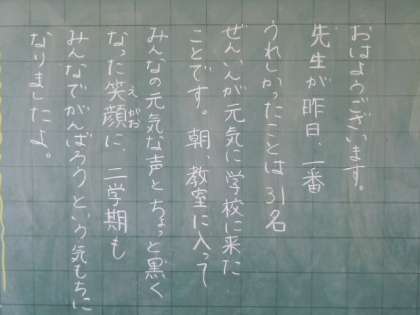 おはようございます。
先生が昨日、一番
うれしかったことは31名
ぜんいんが元気に学校に来た
ことです。朝、教室に入って
みんなの元気な声とちょっと黒く
なった笑顔に、二学期も
えがお
みんなでがんばろうという気もちに
なりましたよ。